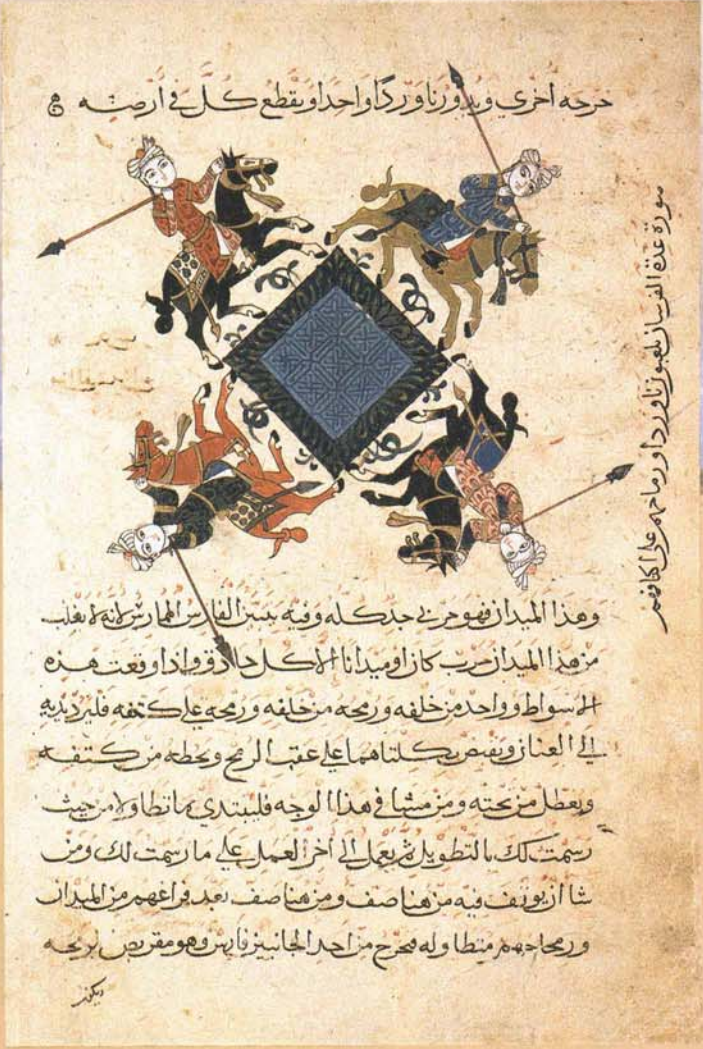 خرجه اخرى ويدورنا وردًا واحدا ويقطع كل في ارضه
صورة عدة الفرسان يلعبون ناوردا ورماحهم على اكتافهم
وهذا الميدان فهو حربي جد كله وفيه يبين الفارس الممارس لانه لا يغلب
من هذا الميدان حرب كان او ميدانا الا كل حاذق واذا وقعت هذه
الاسواط وواحد من خلفه ورمحه من خلفه ورمحه على كتفه فليرد يديه
الى العنان ويقبض بكلتاهما على عقب الرمح ويحطه من كتفه
ويعطل من تحته ومن مشا في هذا الوجه فليبتدي مانطاولا من حيث
رسمت لك بالتطويل ثم يعمل الى اخر العمل على ما رسمت لك ومن
شا ان يوقف فيه من هنا صف ومن هنا صف بعد فراغهم من الميدان
ورماحهم متطاوله فيخرج من احد الجانبين فارس وهو مقربص لرمحه